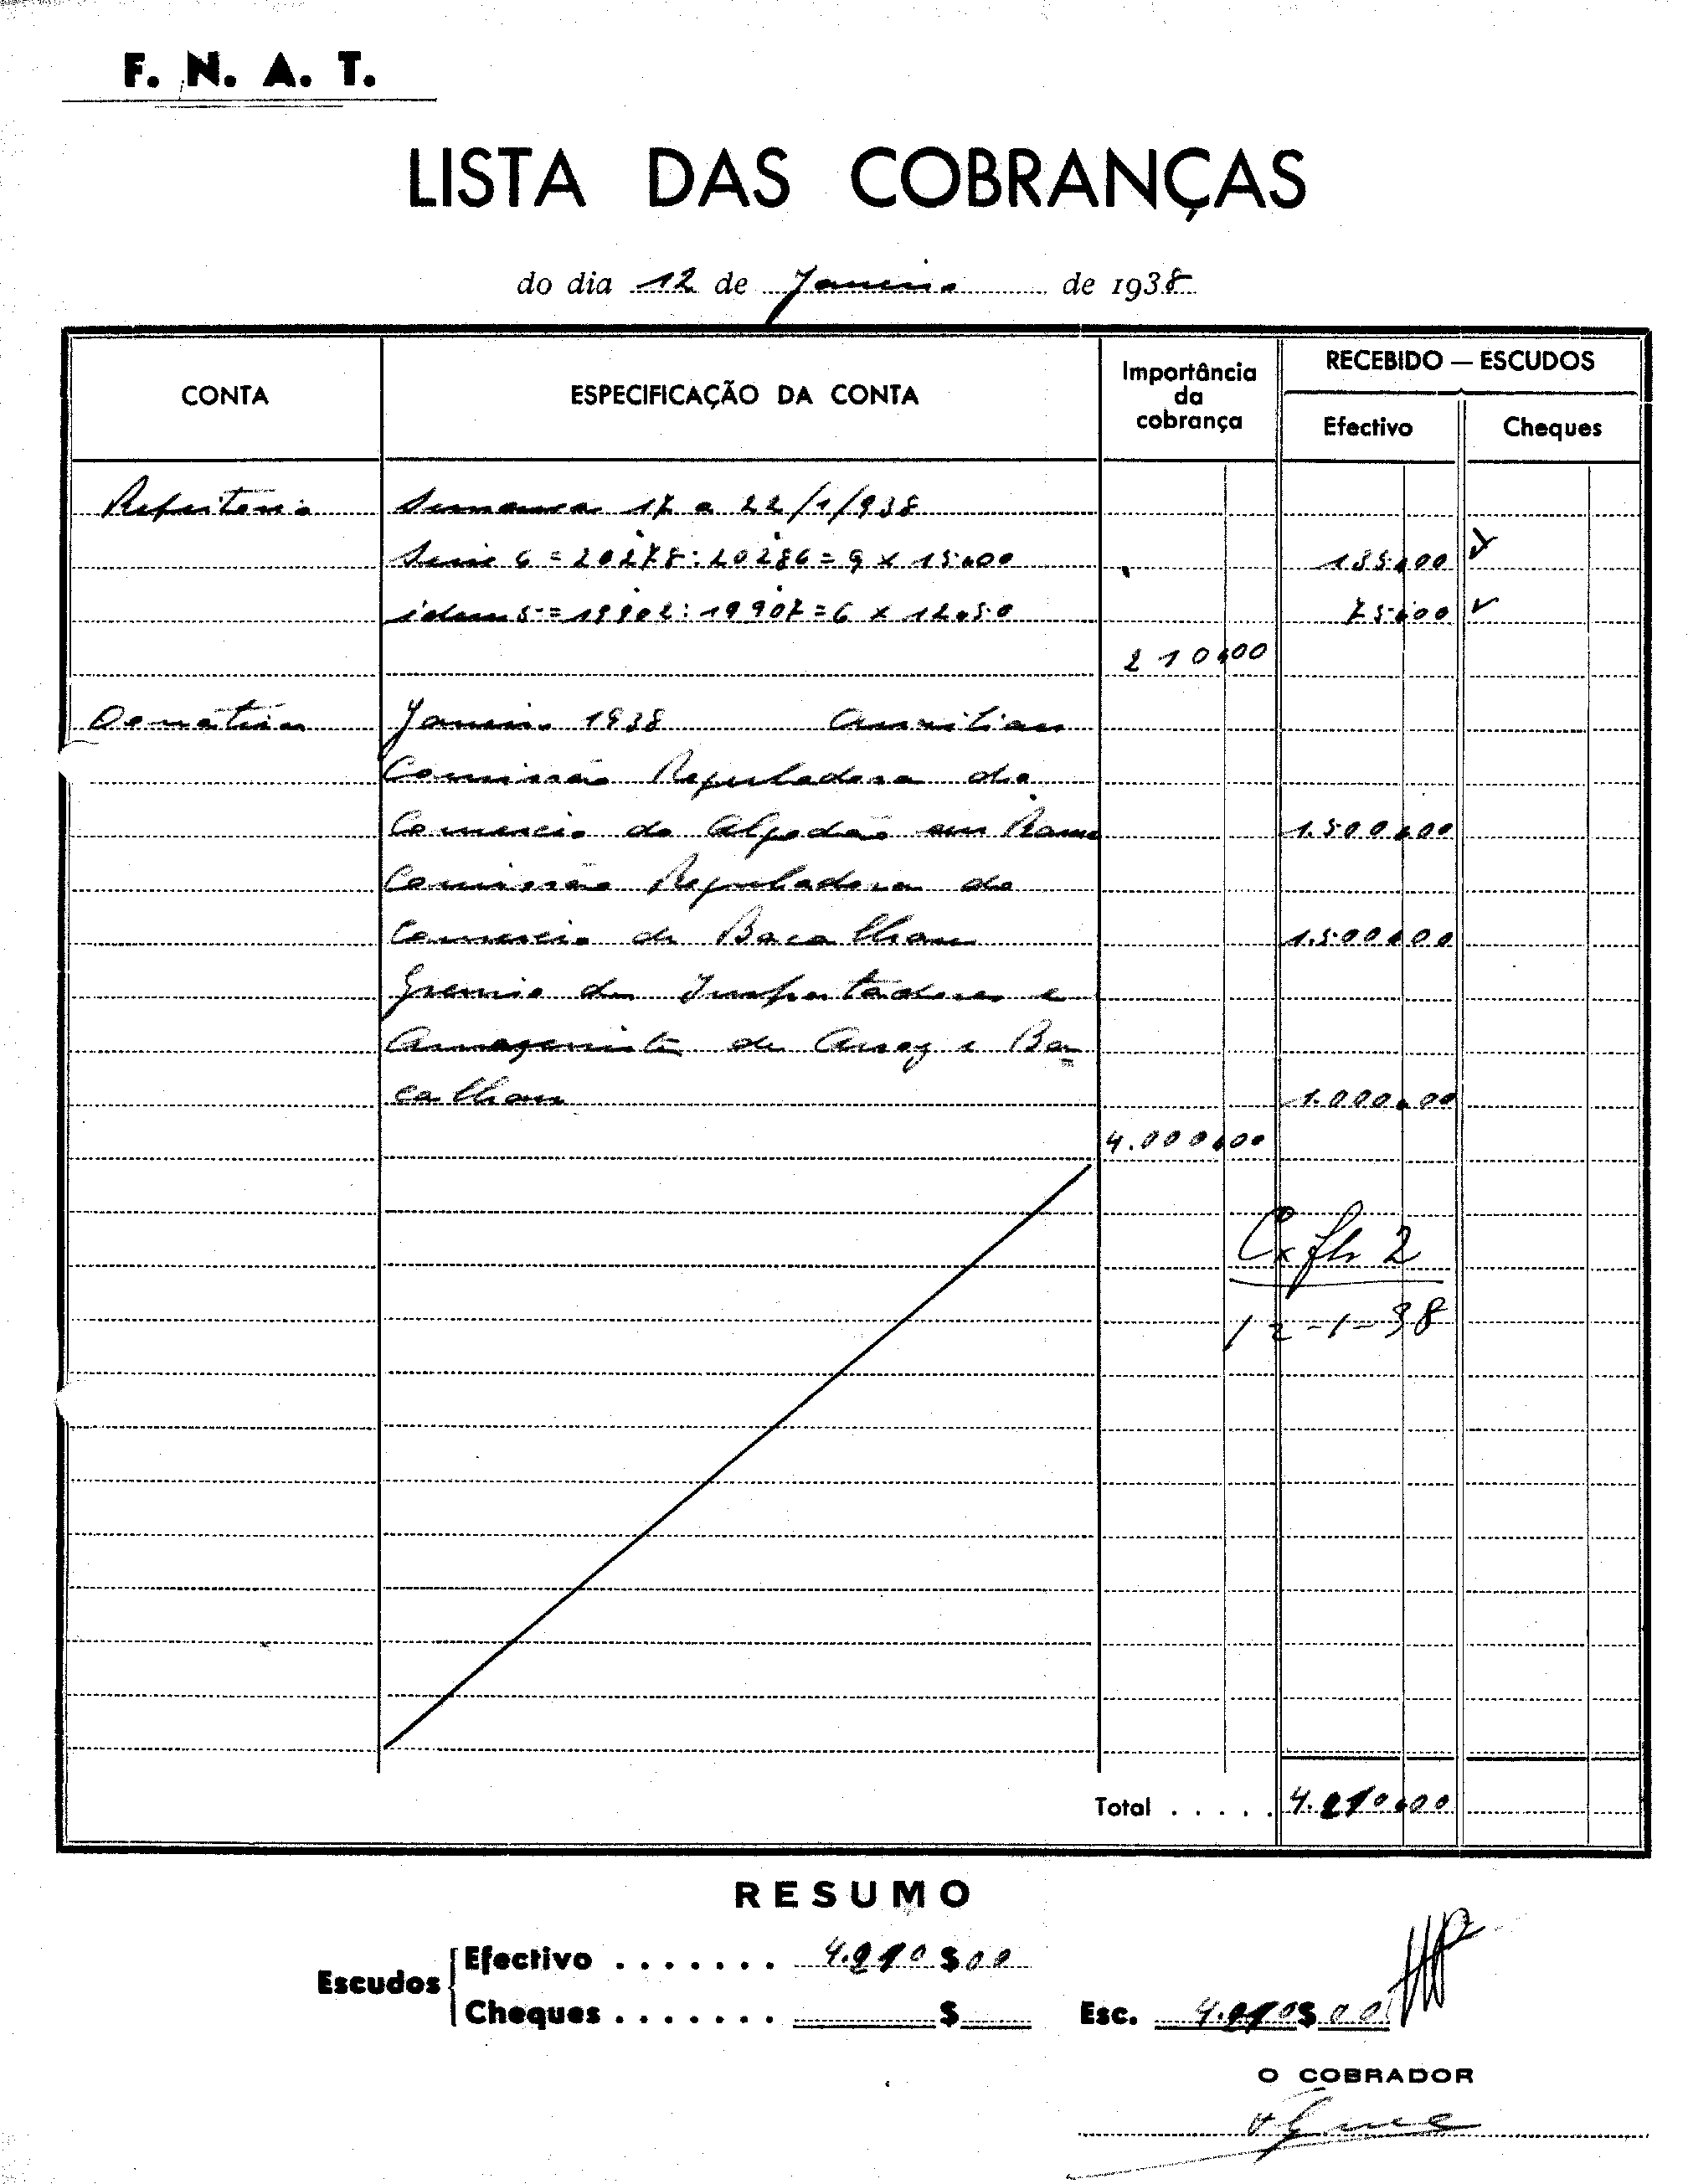 F. N. A. T.
LISTA DAS COBRANÇAS
do dia 12 de Janeiro de 1938
CONTA ESPECIFICAÇÃO DA CONTA Importância da cobrança RECEBIDO — ESCUDOS
Efectivo Cheques
Refeitorio Semana 17 a 22/1/938
Serie 6 = 20278 : 20286 = 9 x 15$00 135$00
idem 5 = 19902 : 19907 = 6 x 12$50 75$00
210$00
Donativos Janeiro 1938 Auxiliar
Comissão Reguladora do
Comercio do Algodão em Rama 1.500$00
Comissão Reguladora do
Comercio de Bacalhau 1.500$00
Gremio dos Importadores e
Armazenistas de Arroz e Ba-
calhau 1.000$00
4.000$00
Cx fls 2
12-1-38
Total . . . . . 4.210$00
RESUMO
Escudos
Efectivo . . . . . . . 4.210$00
Cheques . . . . . . . $ Esc. 4.210$00
O COBRADOR